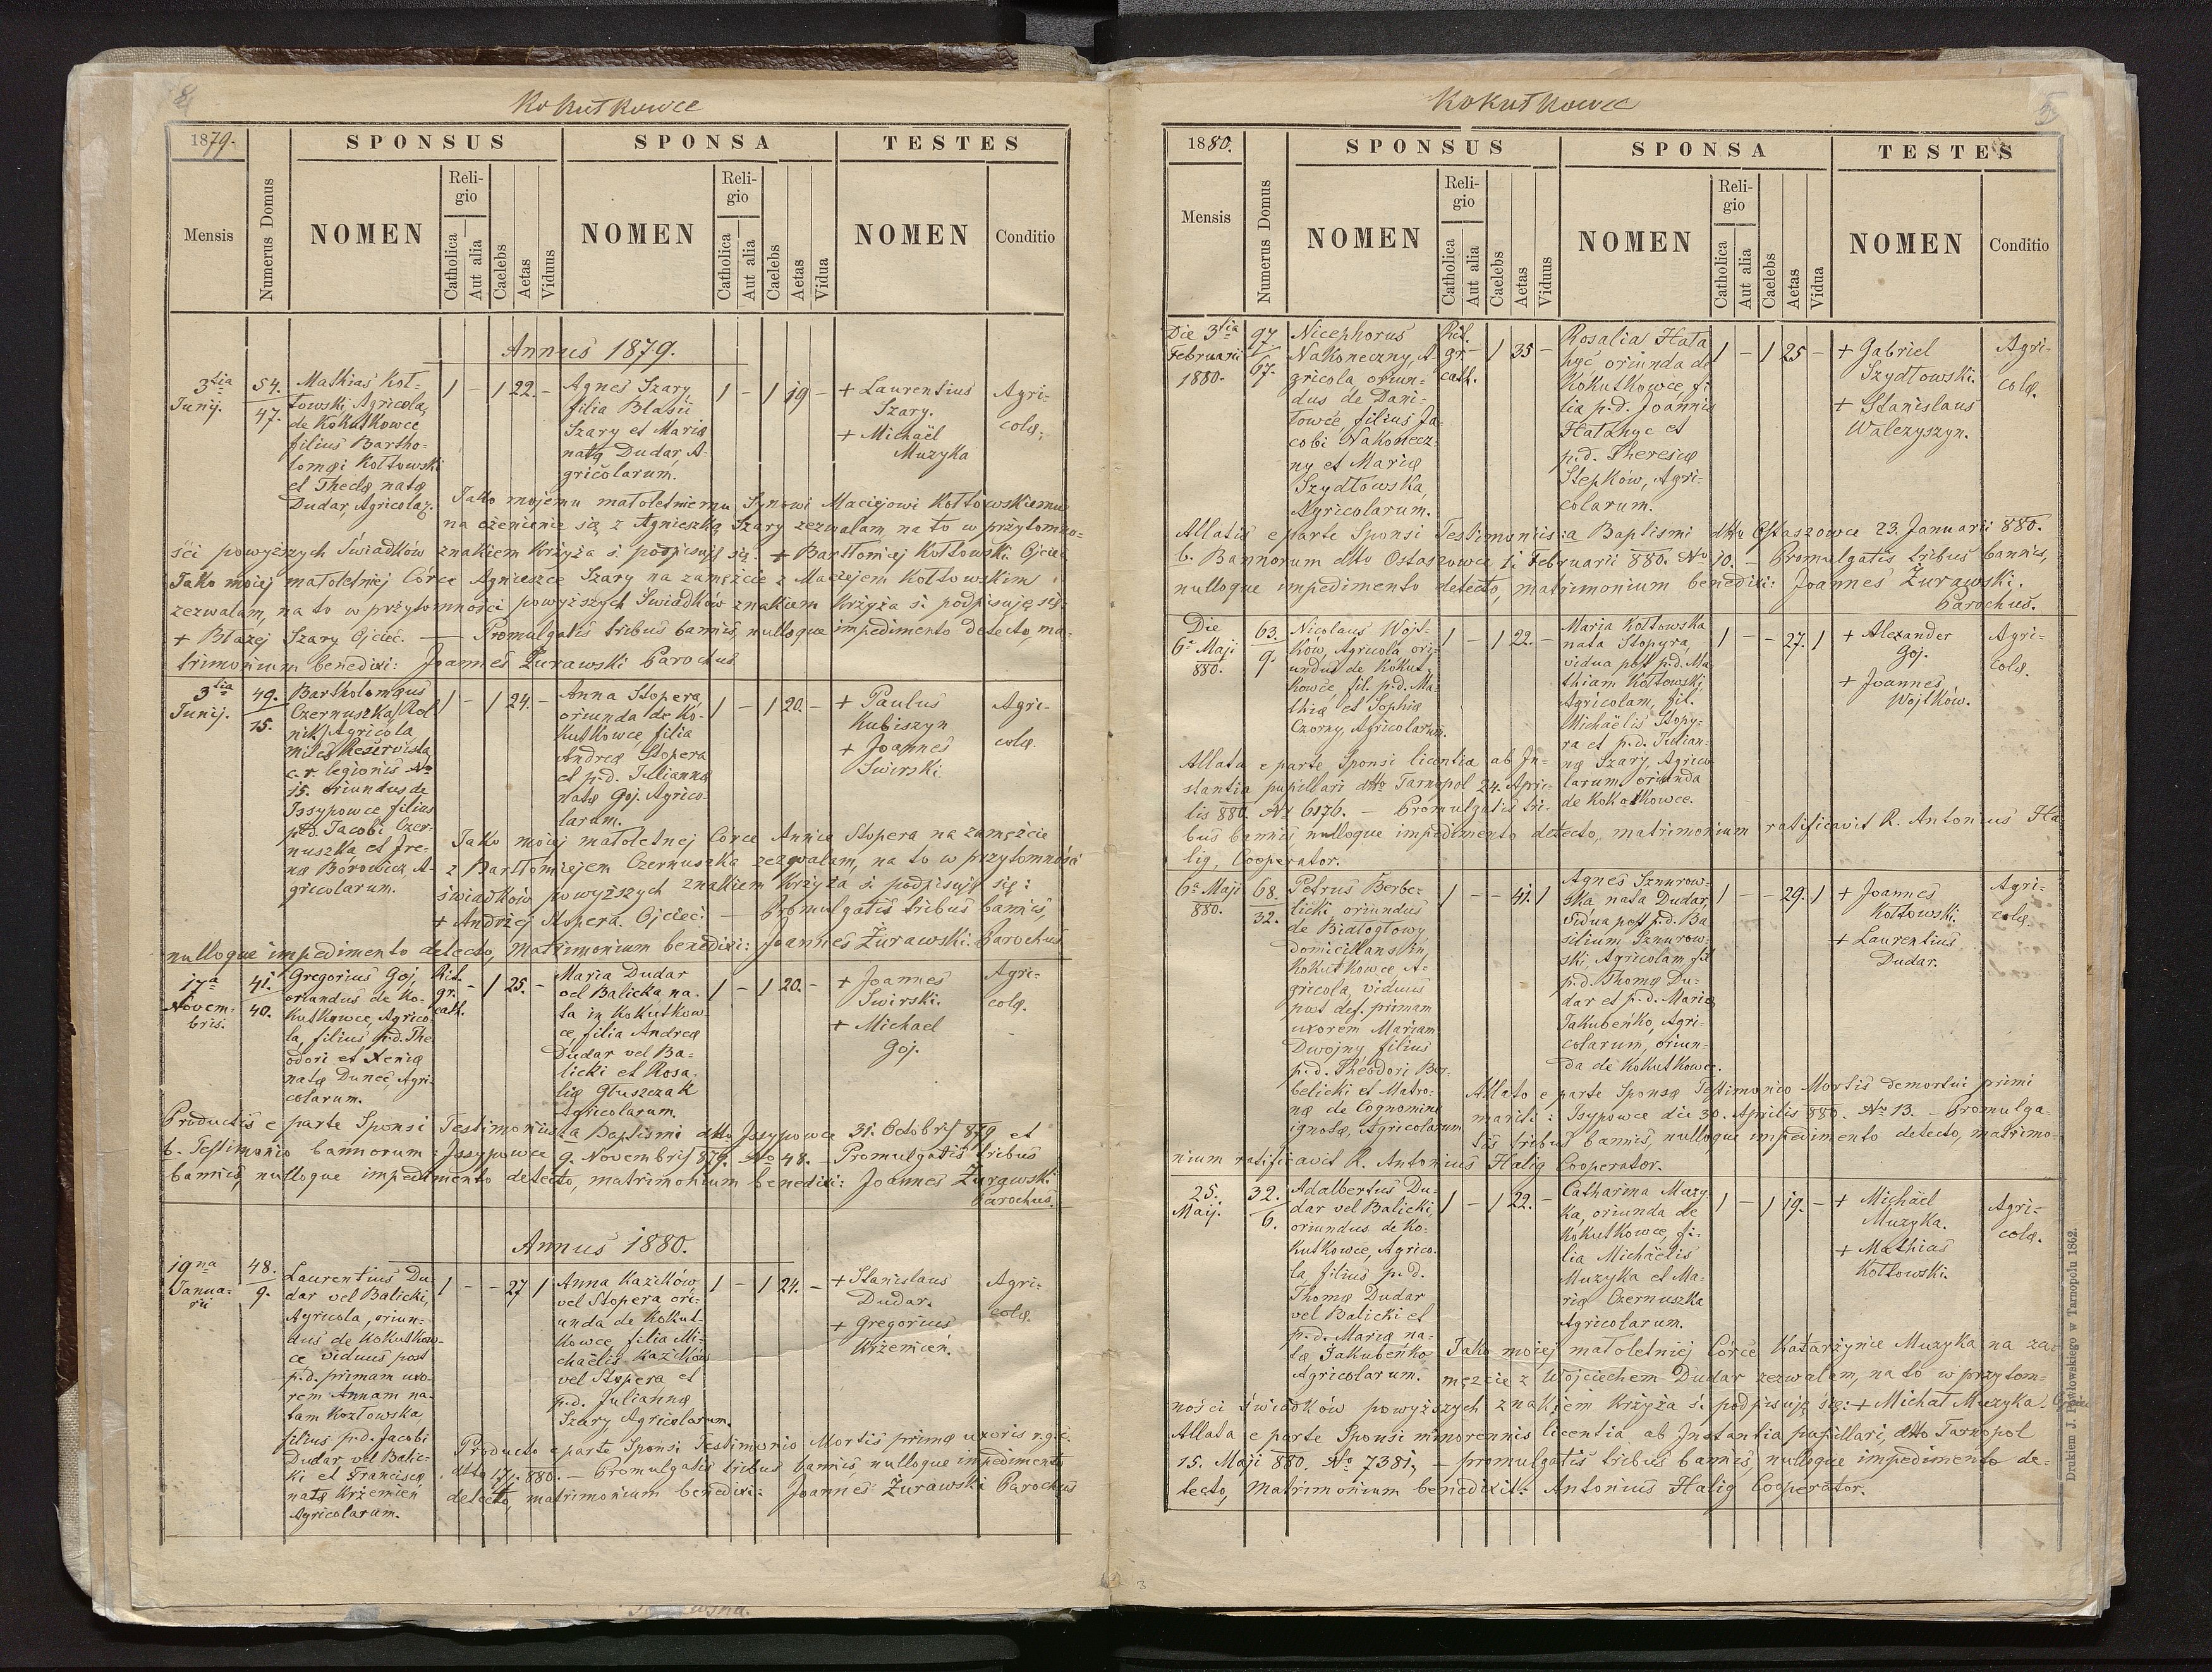 Kokutkowce
1879.
SPONSUS
SPONSA
TESTES
Mensis
Numerus Domus
NOMEN
Reli-
gio
Catholica
Aut alia
Caelebs
Aetas
Viduus
NOMEN
Reli-
gio
Catholica
Aut alia
Caelebs
Aetas
Vidua
NOMEN
Conditio
Annus 1879.
3tia
Junij.
54.
47.
Mathias Koł-
towski, Agricola,
de Kokutkowce
filius Bartho-
lomæi Kołtowski
et Theclæ natæ
Dudar, Agricolar.
1 - 1 22. -
Agnes Szary
filia Blasii
Szary et Mariæ
natæ Dudar, A-
gricolarum.
1 - 1 19 -
+ Laurentius
Szary.
+ Michaël
Muzyka
Agri-
colæ.
Jako mojemu małoletniemu Synowi Maciejowi Kołtowskiemu
na ożenienie się z Agnieszką Szary zezwalam, na to w przytomno-
ści powyższych Świadków znakiem Krzyża ś. podpisuję się: + Bartłomiej Kołtowski Ojciec
Jako mojej małoletniej Córce Agnieszce Szary na zamęźcie z Maciejem Kołtowskim
zezwalam, na to w przytomności powyższych Świadków znakiem Krzyża ś. podpisuję się:
+ Błażej Szary Ojciec. — Promulgatis tribus bannis, nulloque impedimento detecto, ma-
trimonium benedixi: Joannes Żurawski Parochus
3tia
Junij.
49.
15.
Bartholomæus
Czernuszka (Rol
nik) Agricola
miles Reservista
c. r. legionis No
15. oriundus de
Issypowce filius
p.d. Jacobi Czer-
nuszka et Ire-
næ Borowicz, A-
gricolarum.
1 - 1 24. -
Anna Stopera,
oriunda de Ko-
kutkowce filia
Andreæ Stopera
et p.d. Juliannæ
natæ Goj. Agrico-
larum.
1 - 1 20. -
+ Paulus
Kubiszyn
+ Joannes
Świrski.
Agri-
colæ.
Jako mojej małoletnej Córce Annie Stopera na zamęźcie
z Bartłomiejem Czernuszka zezwalam, na to w przytomności
świadków powyższych znakiem Krzyża ś. podpisuję się:
+ Andrzej Stopera. Ojciec: — Promulgatis tribus bannis,
nulloque impedimento detecto, matrimonium benedixi: Joannes Żurawski. Parochus
17a
Novem-
bris.
41.
40.
Gregorius Goj,
oriundus de Ko-
kutkowce, Agrico-
la, filius p.d. The
odori et Xeniæ
natæ Dunec, Agri-
colarum.
Rit.
gr.
cath.
- 1 25. -
Maria Dudar
vel Balicka na-
ta in Kokutkow
ce, filia Andreæ
Dudar vel Ba-
licki et Rosa-
liæ Głuszczak
Agricolarum.
1 - 1 20. -
+ Joannes
Świrski.
+ Michael
Goj.
Agri-
colæ.
Productis e parte Sponsi Testimoniis: a Baptismi dtto Issypowce 31. Octobris 879 et
b. Testimonio bannorum: Issypowce 9. Novembris 879. No 48. - Promulgatis tribus
bannis, nulloque impedimento detecto, matrimonium benedixi: Joannes Żurawski
Parochus.
Annus 1880.
19na
Janua-
rii
48.
9.
Laurentius Du
dar vel Balicki,
Agricola, oriun-
dus de Kokutkow-
ce viduus post
p.d. primam uxo-
rem Annam na-
tam Kozłowska,
filius p.d. Jacobi
Dudar vel Balic-
ki et Franciscæ
natæ Krzemień
Agricolarum.
1 - - 27 1
Anna Kaźków
vel Stopera ori-
unda de Kokut-
kowce, filia Mi-
chaëlis Kaźków
vel Stopera et
p.d. Juliannæ
Szary Agricolarum.
1 - 1 24. -
+ Stanislaus
Dudar.
+ Gregorius
Krzemień.
Agri-
colæ.
Producto e parte Sponsi Testimonio Mortis primæ uxoris
dtto 17/1. 880. - Promulgatis tribus bannis, nulloque impedimento
detecto, matrimonium benedixi: Joannes Żurawski Parochus
Kokutkowce
5
1880.
SPONSUS
SPONSA
TESTES
Mensis
Numerus Domus
NOMEN
Reli-
gio
Catholica
Aut alia
Caelebs
Aetas
Viduus
NOMEN
Reli-
gio
Catholica
Aut alia
Caelebs
Aetas
Vidua
NOMEN
Conditio
Die 3tia
Februarii
1880.
97
67.
Nicephorus
Nakoneczny, A-
gricola, oriun-
dus de Dani-
łowce, filius Ja-
cobi Nakonecz-
ny et Mariæ
Szydłowska,
Agricolarum.
Rit.
gr.
cath.
- 1 35 -
Rosalia Hała
hyć oriunda de
Kokutkowce, fi
lia p.d. Joannis
Hałahyc et
p.d. Theresiæ
Stepków, Agri-
colarum.
1 - 1 25 -
+ Gabriel
Szydłowski.
+ Stanislaus
Walczyszyn.
Agri-
colæ.
Allatis e parte Sponsi Testimoniis: a Baptismi dtto Ostaszowce 23. Januarii 880.
b. Bannorum dtto Ostaszowce 1. Februarii 880. No 10. - Promulgatis tribus bannis,
nulloque impedimento detecto, matrimonium benedixi: Joannes Żurawski.
Parochus.
Die
6a Maji
880.
63.
9.
Nicolaus Wojt-
ków, Agricola ori-
undus de Kokut-
kowce, fil. p.d. Ma-
thiæ et Sophiæ
Czorny, Agricolarum.
1 - 1 22. -
Maria Kołtowska
nata Stopyra,
vidua post p.d. Ma
thiam Kołtowski,
Agricolam, fil.
Michaëlis Stopy-
ra et p.d. Julian-
næ Szary, Agrico
larum, oriunda
de Kokotkowce.
1 - - 27. 1
+ Alexander
Goj.
+ Joannes
Wojtków.
Agri-
colæ.
Allata e parte Sponsi licentia ab In-
stantia pupillari dtto Tarnopol 24. Apri-
lis 880. Nr 6176. - Promulgatis tri-
bus bannis, nulloque impedimento detecto, matrimonium ratificavit R. Antonius Ha
lig, Cooperator.
6a Maji
880.
68.
32.
Petrus Berbe-
licki oriundus
de Białogłowy
domicilians in
Kokutkowce, A-
gricola, viduus
post def. primam
uxorem Mariam
Dwojny filius
p.d. Theodori Ber-
belicki et Matro-
næ de Cognomine
ignotæ, Agricolarum
1 - - 41. 1
Agnes Sznurow-
ska nata Dudar,
vidua post p.d. Ba
silium Sznurow-
ski, Agricolam fil
p.d. Thomæ Du-
dar et p.d. Mariæ
Jakubeńko, Agri-
colarum, oriun-
da de Kokutkowce.
1 - - 29. 1
+ Joannes
Kołtowski.
+ Laurentius
Dudar.
Agri-
colæ.
Allato e parte Sponsæ Testimonio Mortis demortui primi
mariti: Isypowce die 30. Aprilis 880. Nr 13. - Promulga-
tis tribus bannis, nulloque impedimento detecto, matrimo-
nium ratificavit R. Antonius Halig Cooperator.
25.
Maij.
32.
6.
Adalbertus Du-
dar vel Balicki,
oriundus de Ko-
kutkowce, Agrico-
la, filius p.d.
Thomæ Dudar
vel Balicki et
p.d. Mariæ na-
tæ Jakubeńko
Agricolarum.
1 - 1 22. -
Catharina Muzy
ka, oriunda de
Kokutkowce, fi-
lia Michaëlis
Muzyka et Ma-
riæ Czernuszka
Agricolarum.
1 - 1 19. -
+ Michaël
Muzyka.
+ Mathias
Kołtowski.
Agri-
colæ.
Jako mojej małoletniej Córce Katarzynie Muzyka na za-
męźcie z Wojciechem Dudar zezwalam, na to w przytom-
ności świadków powyższych znakiem Krzyża ś. podpisuję się: + Michał Muzyka.
Allata e parte Sponsi minorennis licentia ab Instantia pupillari, dtto Tarnopol
15. Maji 880. No 7381, - promulgatis tribus bannis, nulloque impedimento de-
tecto, matrimonium benedixit: Antonius Halig Cooperator.
Drukiem J. Pawłowskiego w Tarnopolu 1862.
3